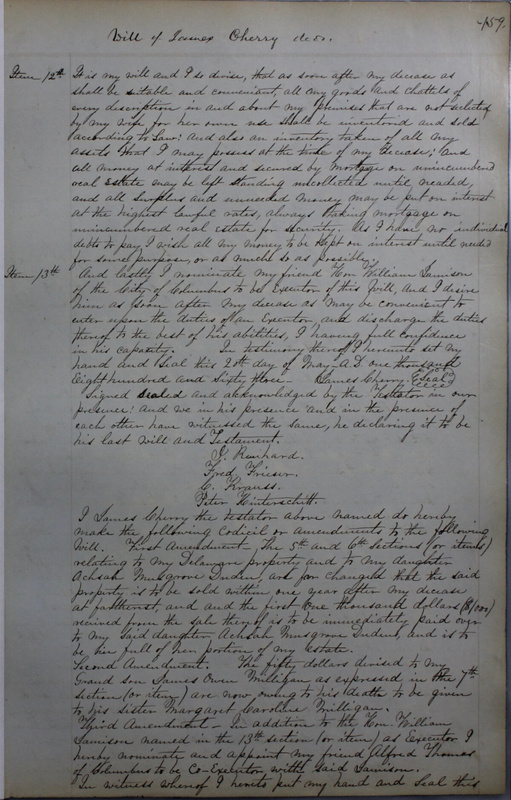 -159.
Will of James Cherry decd.
Item 12th It is my will and I so devise, that as soon after my decease as
shall be suitable and convenient, all my goods and chattels of
every description in and about my premises that are not selected
by my wife for her own use shall be inventoried and sold
according to Law: And also an inventory taken of all my
assets that I may possess at the time of my decease; And
all money at interest and secured by mortgage on unincumbered
real estate may be left standing uncollected until needed,
and all surplus and unneeded money may be put on interest
at the highest lawful rates, always taking mortgage on
unincumbered real estate for security. As I have no individual
debts to pay, I wish all my money to be kept on interest until needed
for some purpose, or as much so as possible.
Item 13th And lastly I nominate my friend Hon. William Jamison
of the City of Columbus to be Executor of this Will, and I desire
him as soon after my decease as may be convenient to
enter upon the duties of an Executor, and discharge the duties
thereof to the best of his abilities, I having full confidence
in his capacity. In testimony thereof I hereunto set my
hand and seal this 20th day of May A.D. one thousand
Eight hundred and Sixty three- James Cherry Seal
Signed sealed and acknowledged by the Testator in our
presence: And we in his presence and in the presence of
each other have witnessed the same, he declaring it to be
his last will and Testament.
J. Reinhard.
Fred Frieser.
C. Krauss.
Peter Hinterschitt.
I James Cherry the testator above named do hereby
make the following Codicil or amendments to the following
Will. First Amendment - The 5th and 6th sections (or items)
relating to my Delaware property and to my daughter
Achsah Musgrove Duden, are for changed that the said
property is to be sold within one year after my decease
at farthest, and and the first One thousand dollars ($1000)
received from the sale thereof is to be immediately paid over
to my said daughter Achsah Musgrove Duden, and is to
be her full of her portion of my estate.
Second Amendment. The fifty dollars devised to my
Grand son James Owen Milligan as expressed in the 7th
section (or item) are now, owing to his death to be given
to his sister Margaret Caroline Milligan.
Third Amendment - In addition to the Hon. William
Jamison named in the 13th section (or item) as Executor I
hereby nominate and appoint my friend Alfred Thomas
of Columbus to be Co-Executor, with said Jamison.
In witness whereof I hereto put my hand and seal this